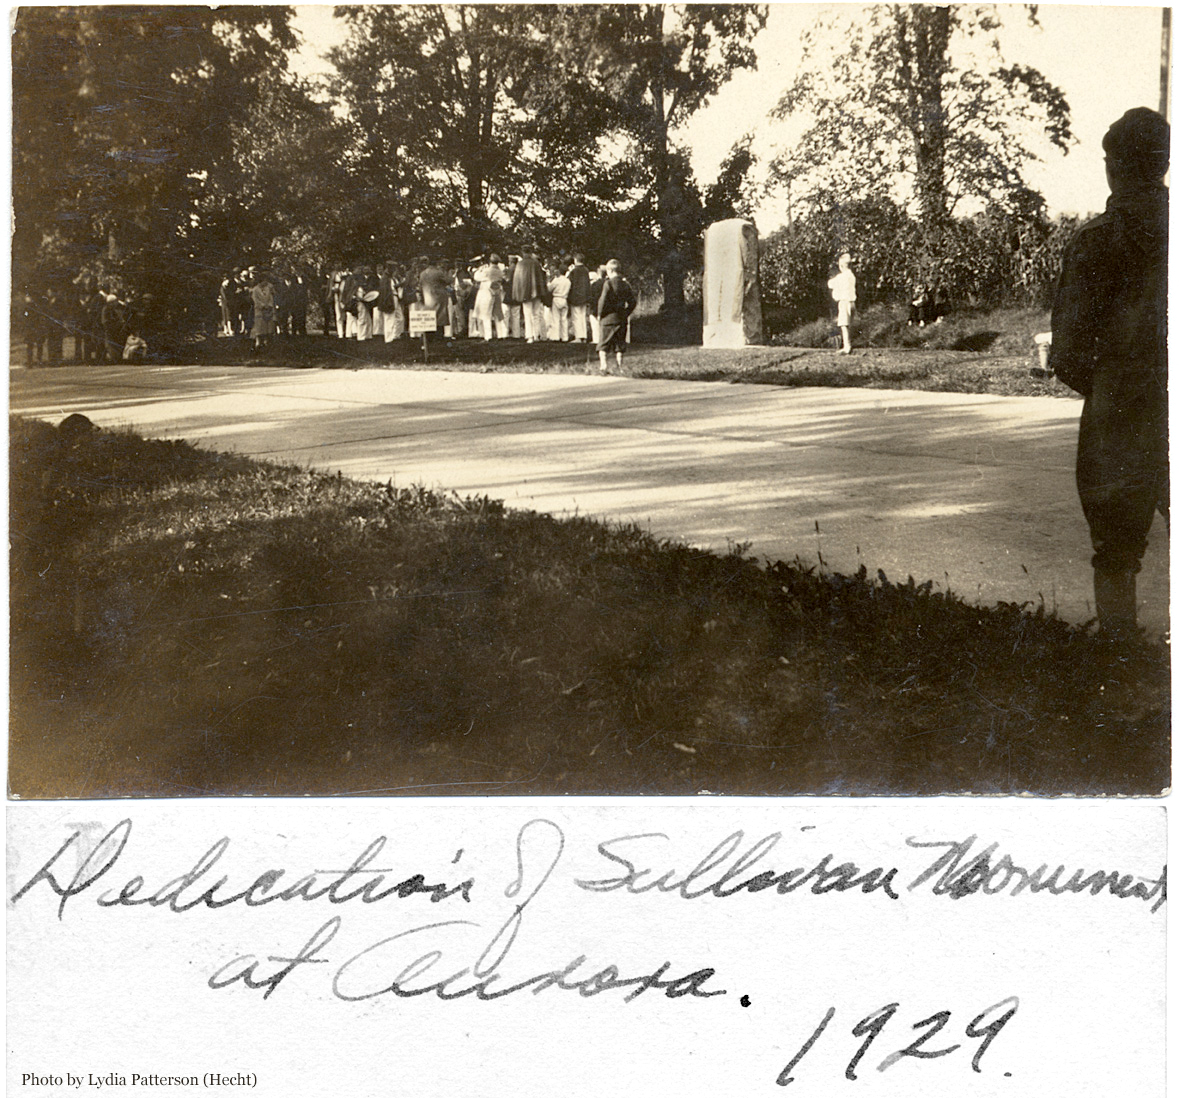 Dedication of Sullivan Monument
at Aurora.
1929.
Photo by Lydia Patterson (Hecht)